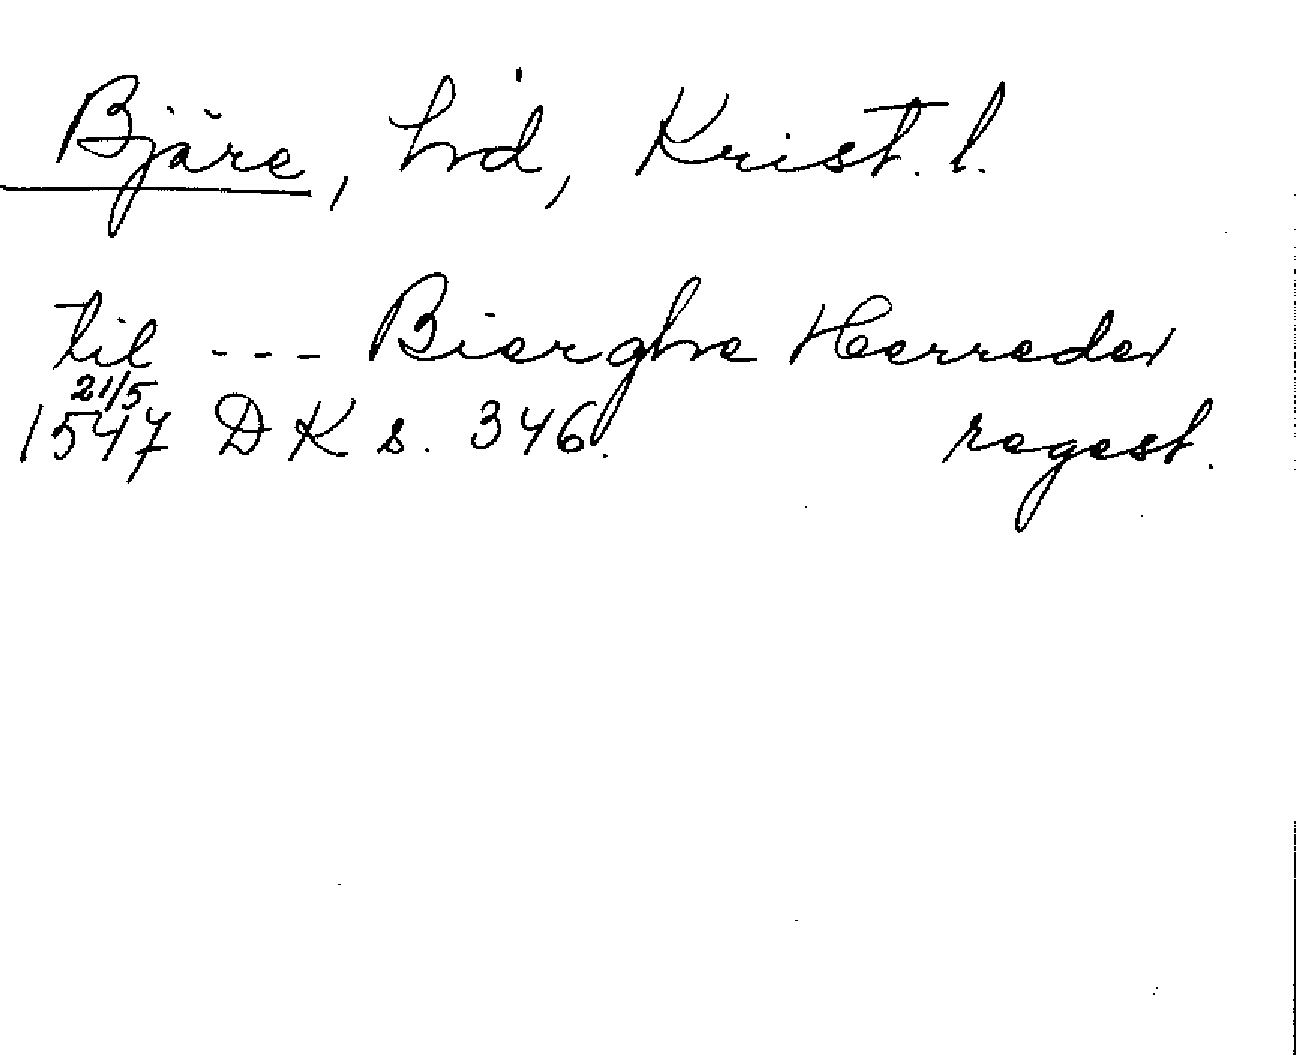 Bjäre, hrd, Krist. l.
til --- Bierghe Herreder
21/5
1547 DK s. 346. regest.